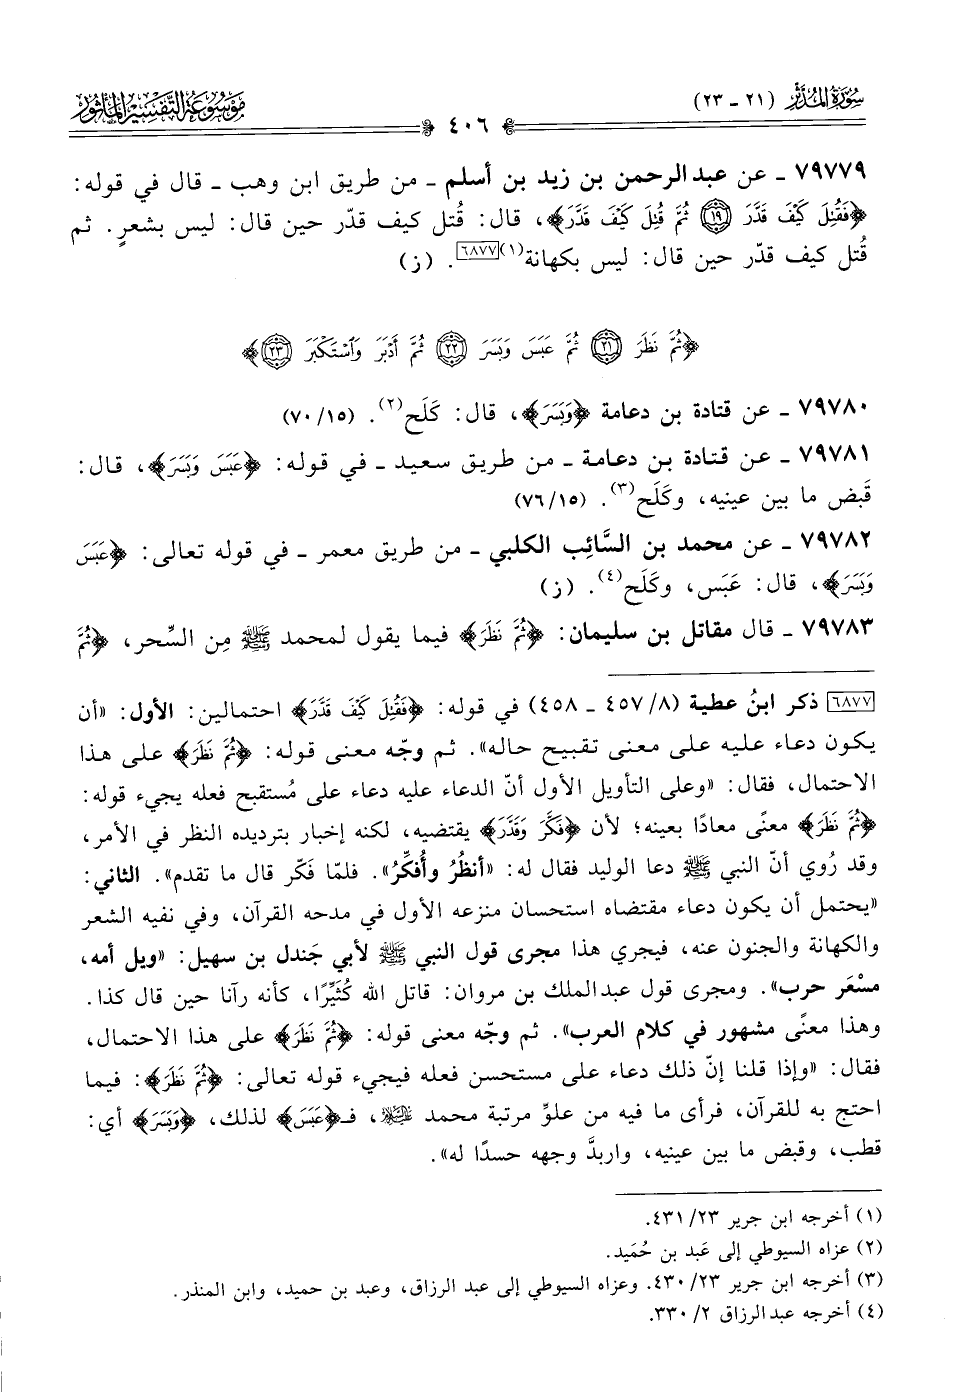 سورة المدثر (٢١ - ٢٣)
٤٠٦
موسوعة التفسير المأثور
٧٩٧٧٩ - عن عبد الرحمن بن زيد بن أسلم - من طريق ابن وهب - قال في قوله:
﴿فَقُتِلَ كَيْفَ قَدَّرَ ۝١٩ ثُمَّ قُتِلَ كَيْفَ قَدَّرَ﴾، قال: قُتل كيف قدّر حين قال: ليس بشعرٍ. ثم
قُتل كيف قدّر حين قال: ليس بكهانة(١)[٦٨٧٧]. (ز)
﴿ثُمَّ نَظَرَ ۝٢١ ثُمَّ عَبَسَ وَبَسَرَ ۝٢٢ ثُمَّ أَدْبَرَ وَٱسْتَكْبَرَ ۝٢٣﴾
٧٩٧٨٠ - عن قتادة بن دعامة ﴿وَبَسَرَ﴾، قال: كَلَح(٢). (٧٠/١٥)
٧٩٧٨١ - عن قتادة بن دعامة - من طريق سعيد - في قوله: ﴿عَبَسَ وَبَسَرَ﴾، قال:
قَبَض ما بين عينيه، وكَلَح(٣). (٧٦/١٥)
٧٩٧٨٢ - عن محمد بن السَّائِب الكلبي - من طريق معمر - في قوله تعالى: ﴿عَبَسَ
وَبَسَرَ﴾، قال: عَبَس، وكَلَح(٤). (ز)
٧٩٧٨٣ - قال مقاتل بن سليمان: ﴿ثُمَّ نَظَرَ﴾ فيما يقول لمحمد ﷺ مِن السِّحر، ﴿ثُمَّ
[٦٨٧٧] ذكر ابنُ عطية (٨/ ٤٥٧ - ٤٥٨) في قوله: ﴿فَقُتِلَ كَيْفَ قَدَّرَ﴾ احتمالين: الأول: «أن
يكون دعاء عليه على معنى تقبيح حاله». ثم وجّه معنى قوله: ﴿ثُمَّ نَظَرَ﴾ على هذا
الاحتمال، فقال: «وعلى التأويل الأول أنّ الدعاء عليه دعاء على مُستقبح فعله يجيء قوله:
﴿ثُمَّ نَظَرَ﴾ معنًى معادًا بعينه؛ لأن ﴿فَكَّرَ وَقَدَّرَ﴾ يقتضيه، لكنه إخبار بترديده النظر في الأمر،
وقد رُوي أنّ النبي ﷺ دعا الوليد فقال له: «أنظُرُ وأُفكِّرُ». فلمّا فَكّر قال ما تقدم». الثاني:
«يحتمل أن يكون دعاء مقتضاه استحسان منزعه الأول في مدحه القرآن، وفي نفيه الشعر
والكهانة والجنون عنه، فيجري هذا مجرى قول النبي ﷺ لأبي جَندل بن سهيل: «ويل أمه،
مسْعَر حرب». ومجرى قول عبد الملك بن مروان: قاتل الله كُثَيِّرًا، كأنه رآنا حين قال كذا.
وهذا معنًى مشهور في كلام العرب». ثم وجّه معنى قوله: ﴿ثُمَّ نَظَرَ﴾ على هذا الاحتمال،
فقال: «وإذا قلنا إنّ ذلك دعاء على مستحسن فعله فيجيء قوله تعالى: ﴿ثُمَّ نَظَرَ﴾: فيما
احتج به للقرآن، فرأى ما فيه من علوِّ مرتبة محمد ﵇، فـ﴿عَبَسَ﴾ لذلك، ﴿وَبَسَرَ﴾ أي:
قطب، وقبض ما بين عينيه، واربدَّ وجهه حسدًا له».
(١) أخرجه ابن جرير ٢٣/ ٤٣١.
(٢) عزاه السيوطي إلى عَبد بن حُمَيد.
(٣) أخرجه ابن جرير ٢٣/ ٤٣٠. وعزاه السيوطي إلى عبد الرزاق، وعبد بن حميد، وابن المنذر.
(٤) أخرجه عبد الرزاق ٢/ ٣٣٠.